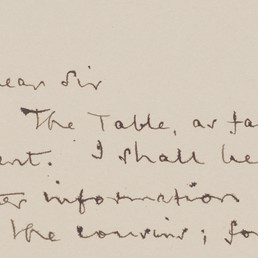 ear Sir
The Table, as fa
ent. I shall be
er information
the cousins; fo